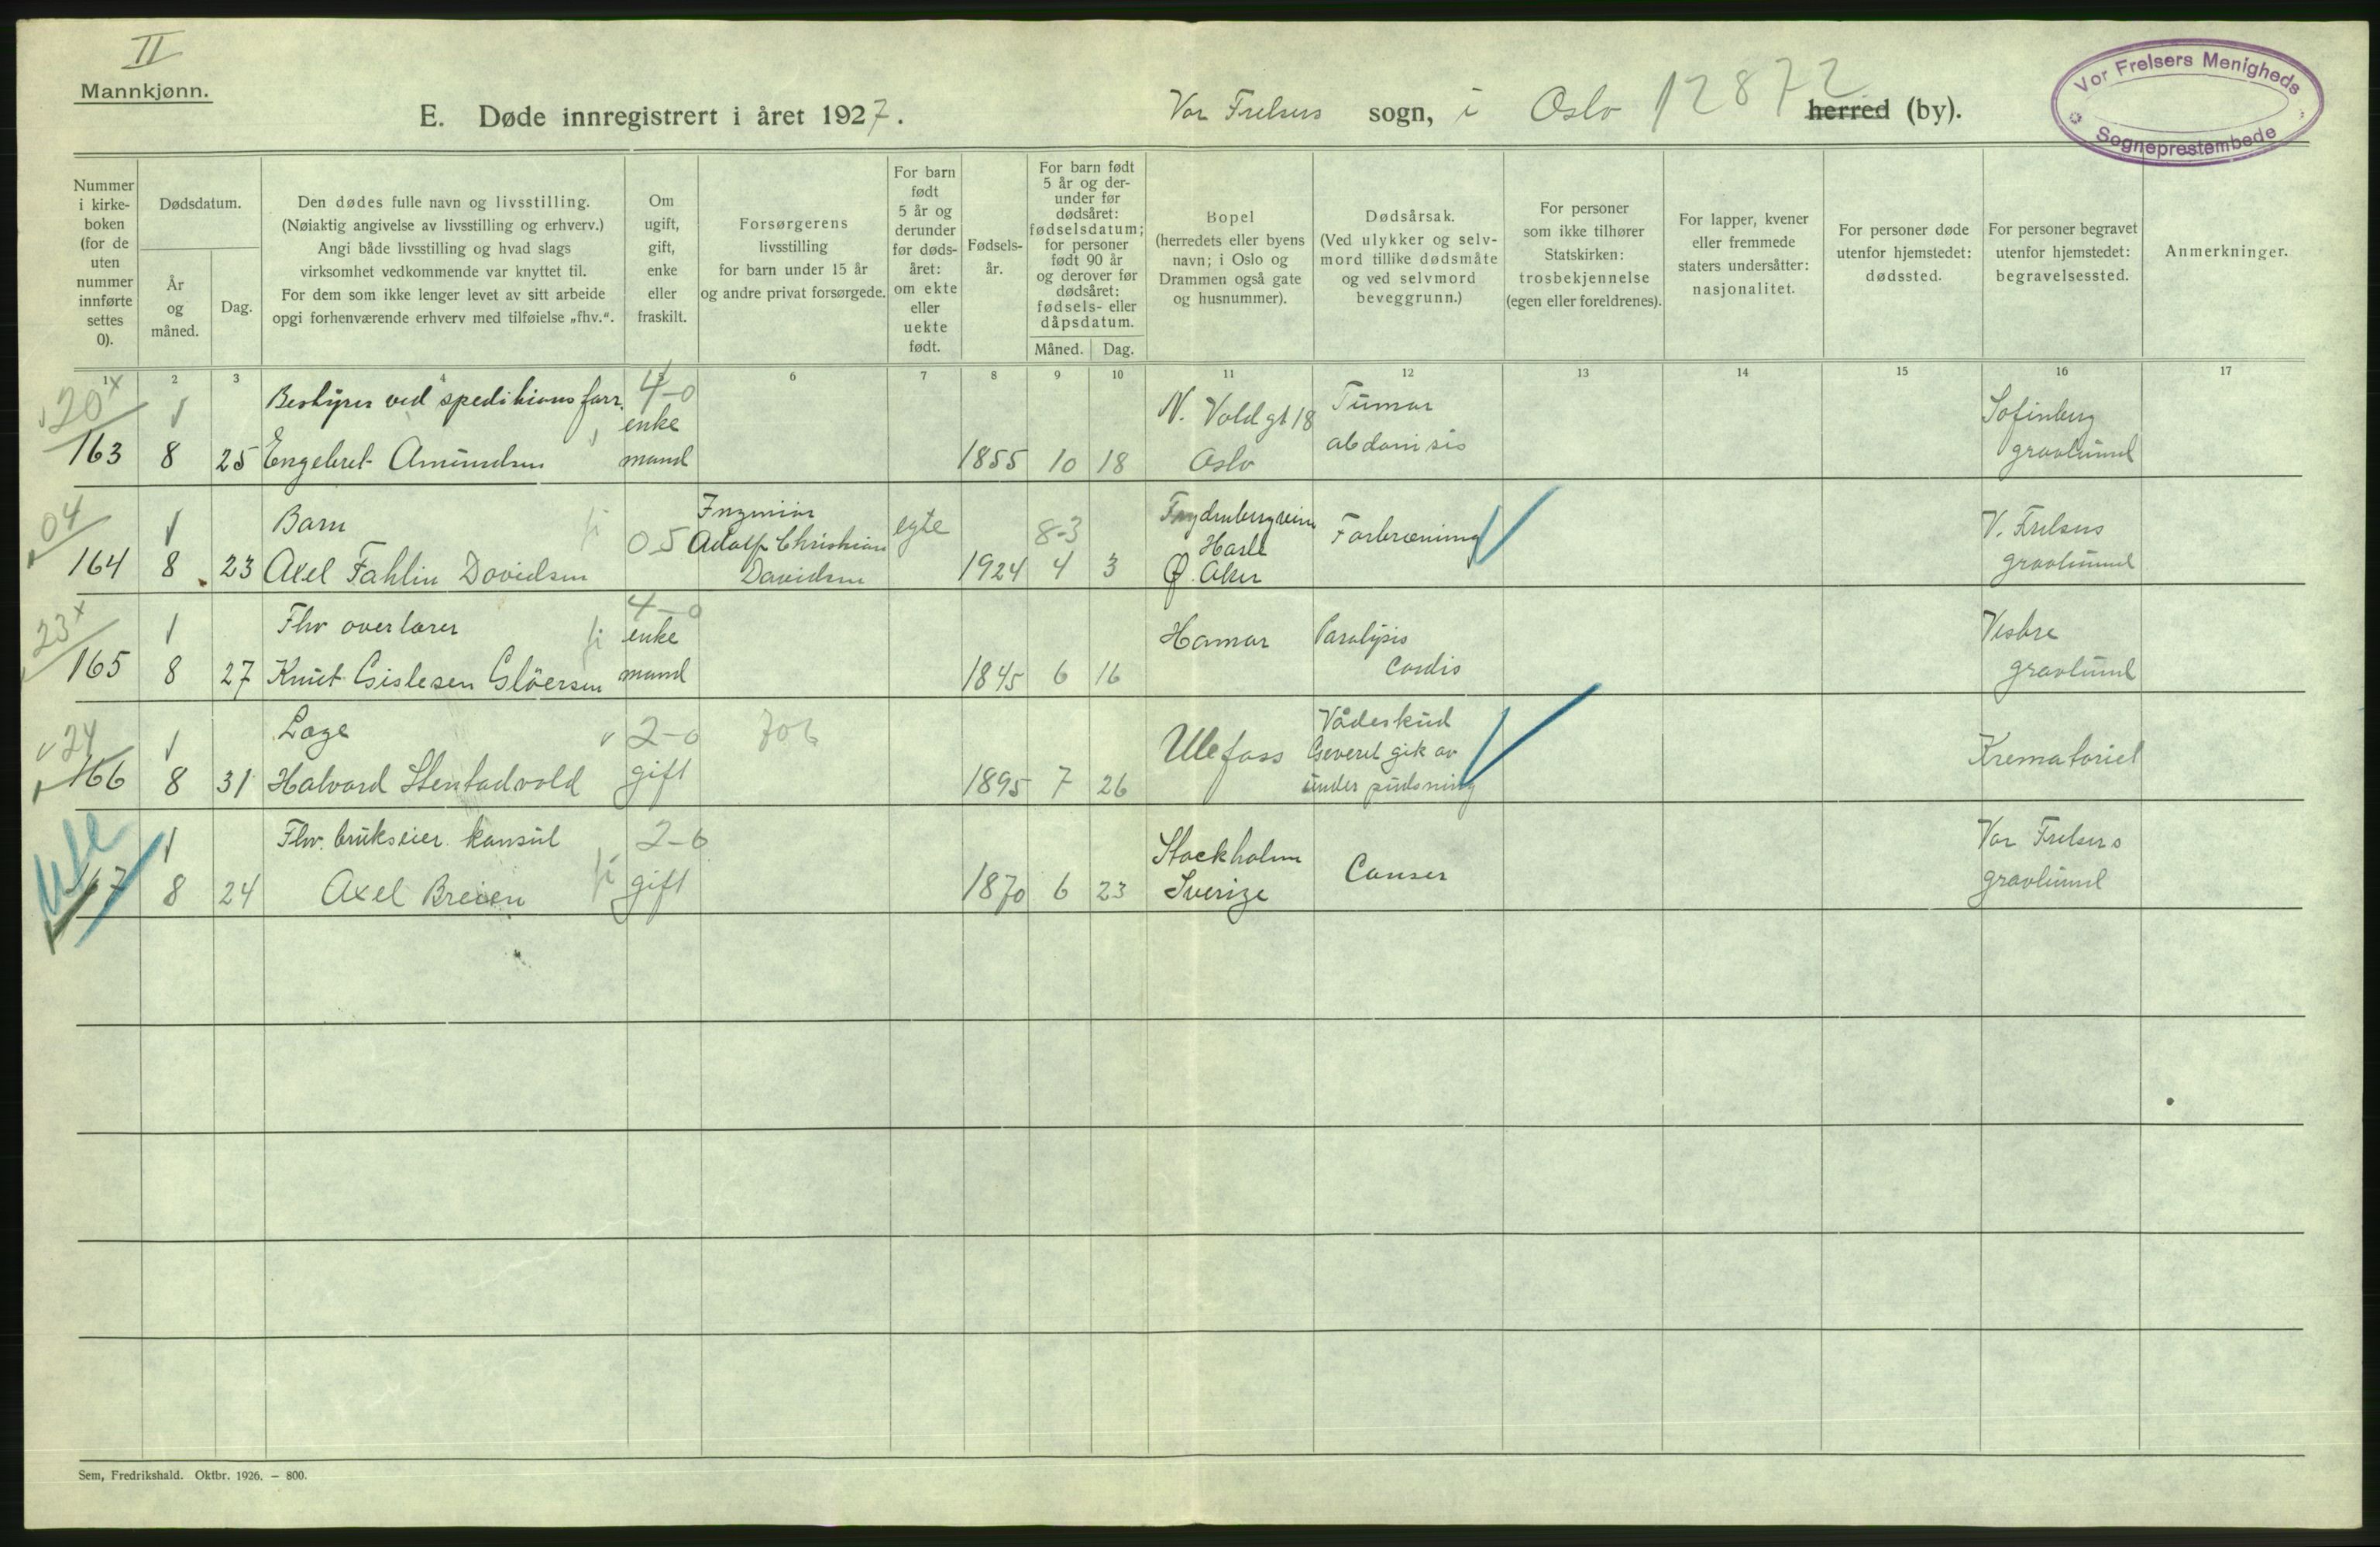 II
Mannkjønn.
E. Døde innregistrert i året 1927. Vor Frelsers sogn, i Oslo herred (by).
12872
Vor Frelsers Menigheds
Sogneprestembede
Nummer i kirke- boken (for de uten nummer innførte settes 0).
Dødsdatum.
År og måned.
Dag.
Den dødes fulle navn og livsstilling.
(Nøiaktig angivelse av livsstilling og erhverv.)
Angi både livsstilling og hvad slags
virksomhet vedkommende var knyttet til.
For dem som ikke lenger levet av sitt arbeide
opgi forhenværende erhverv med tilføielse „fhv.“.
Om ugift, gift, enke eller fraskilt.
Forsørgerens
livsstilling
for barn under 15 år
og andre privat forsørgede.
For barn født 5 år og derunder før døds- året: om ekte eller uekte født.
Fødsels- år.
For barn født 5 år og der- under før dødsåret: fødselsdatum; for personer født 90 år og derover før dødsåret: fødsels- eller dåpsdatum.
Måned. Dag.
Bopel
(herredets eller byens
navn; i Oslo og
Drammen også gate
og husnummer).
Dødsårsak.
(Ved ulykker og selv-
mord tillike dødsmåte
og ved selvmord
beveggrunn.)
For personer
som ikke tilhører
Statskirken:
trosbekjennelse
(egen eller foreldrenes).
For lapper, kvener
eller fremmede
staters undersåtter:
nasjonalitet.
For personer døde
utenfor hjemstedet:
dødssted.
For personer begravet
utenfor hjemstedet:
begravelsessted.
Anmerkninger.
1 2 3 4 5 6 7 8 9 10 11 12 13 14 15 16 17
20 x Bestyrer ved speditions forr. 4-0 enke N. Voldgt 18 Tumor Sofienberg
163 8 25 Engebret Amundsen mand 1855 10 18 Oslo abdominis gravlund
04 Barn 0 5 Ingeniør Adolf Christian egte 8-3 Frydenbergveien Hasle Forbrænning V. Frelsers
164 8 23 Axel Fahlin Davidsen Davidsen 1924 4 3 Ø. Aker gravlund
23 x Fhv overlærer 4-0 enke Hamar Paralysis Vestre
165 8 27 Knut Gislesen Glöersen mand 1845 6 16 Cordis gravlund
24 Læge 2-0 706 Ulefoss Vådeskud Geveret gik av
166 8 31 Halvard Stentadvold gift 1895 7 26 under pudsning Krematoriet
Fhv. brukseier konsul 2-6 Stockholm Vor Frelsers
167 8 24 Axel Breien gift 1870 6 23 Sverige Canser gravlund
Sem, Fredrikshald. Oktbr. 1926. — 800.